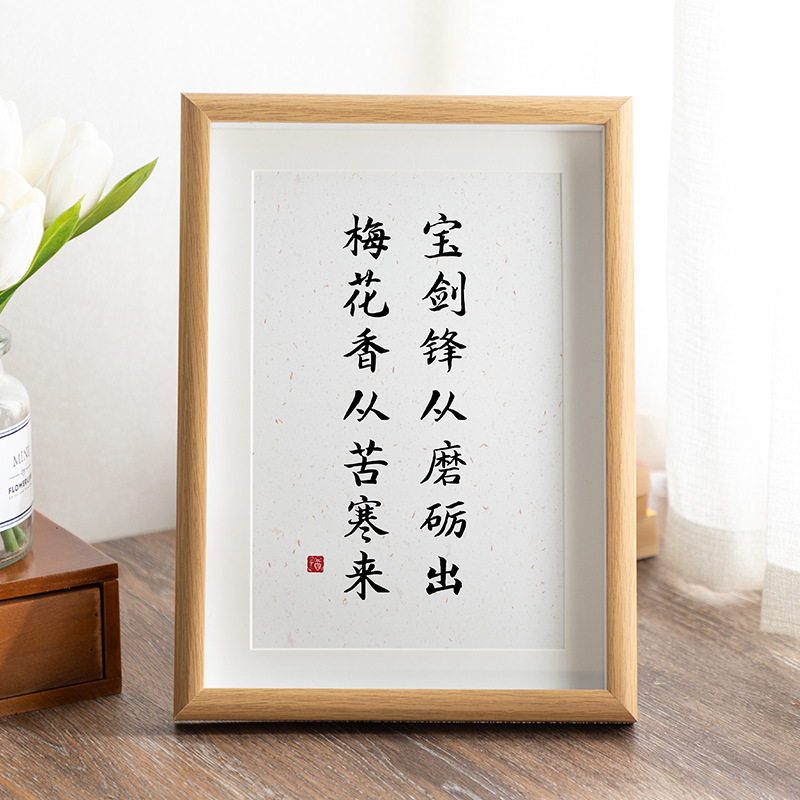 宝剑锋从磨砺出
梅花香从苦寒来
FLOWER